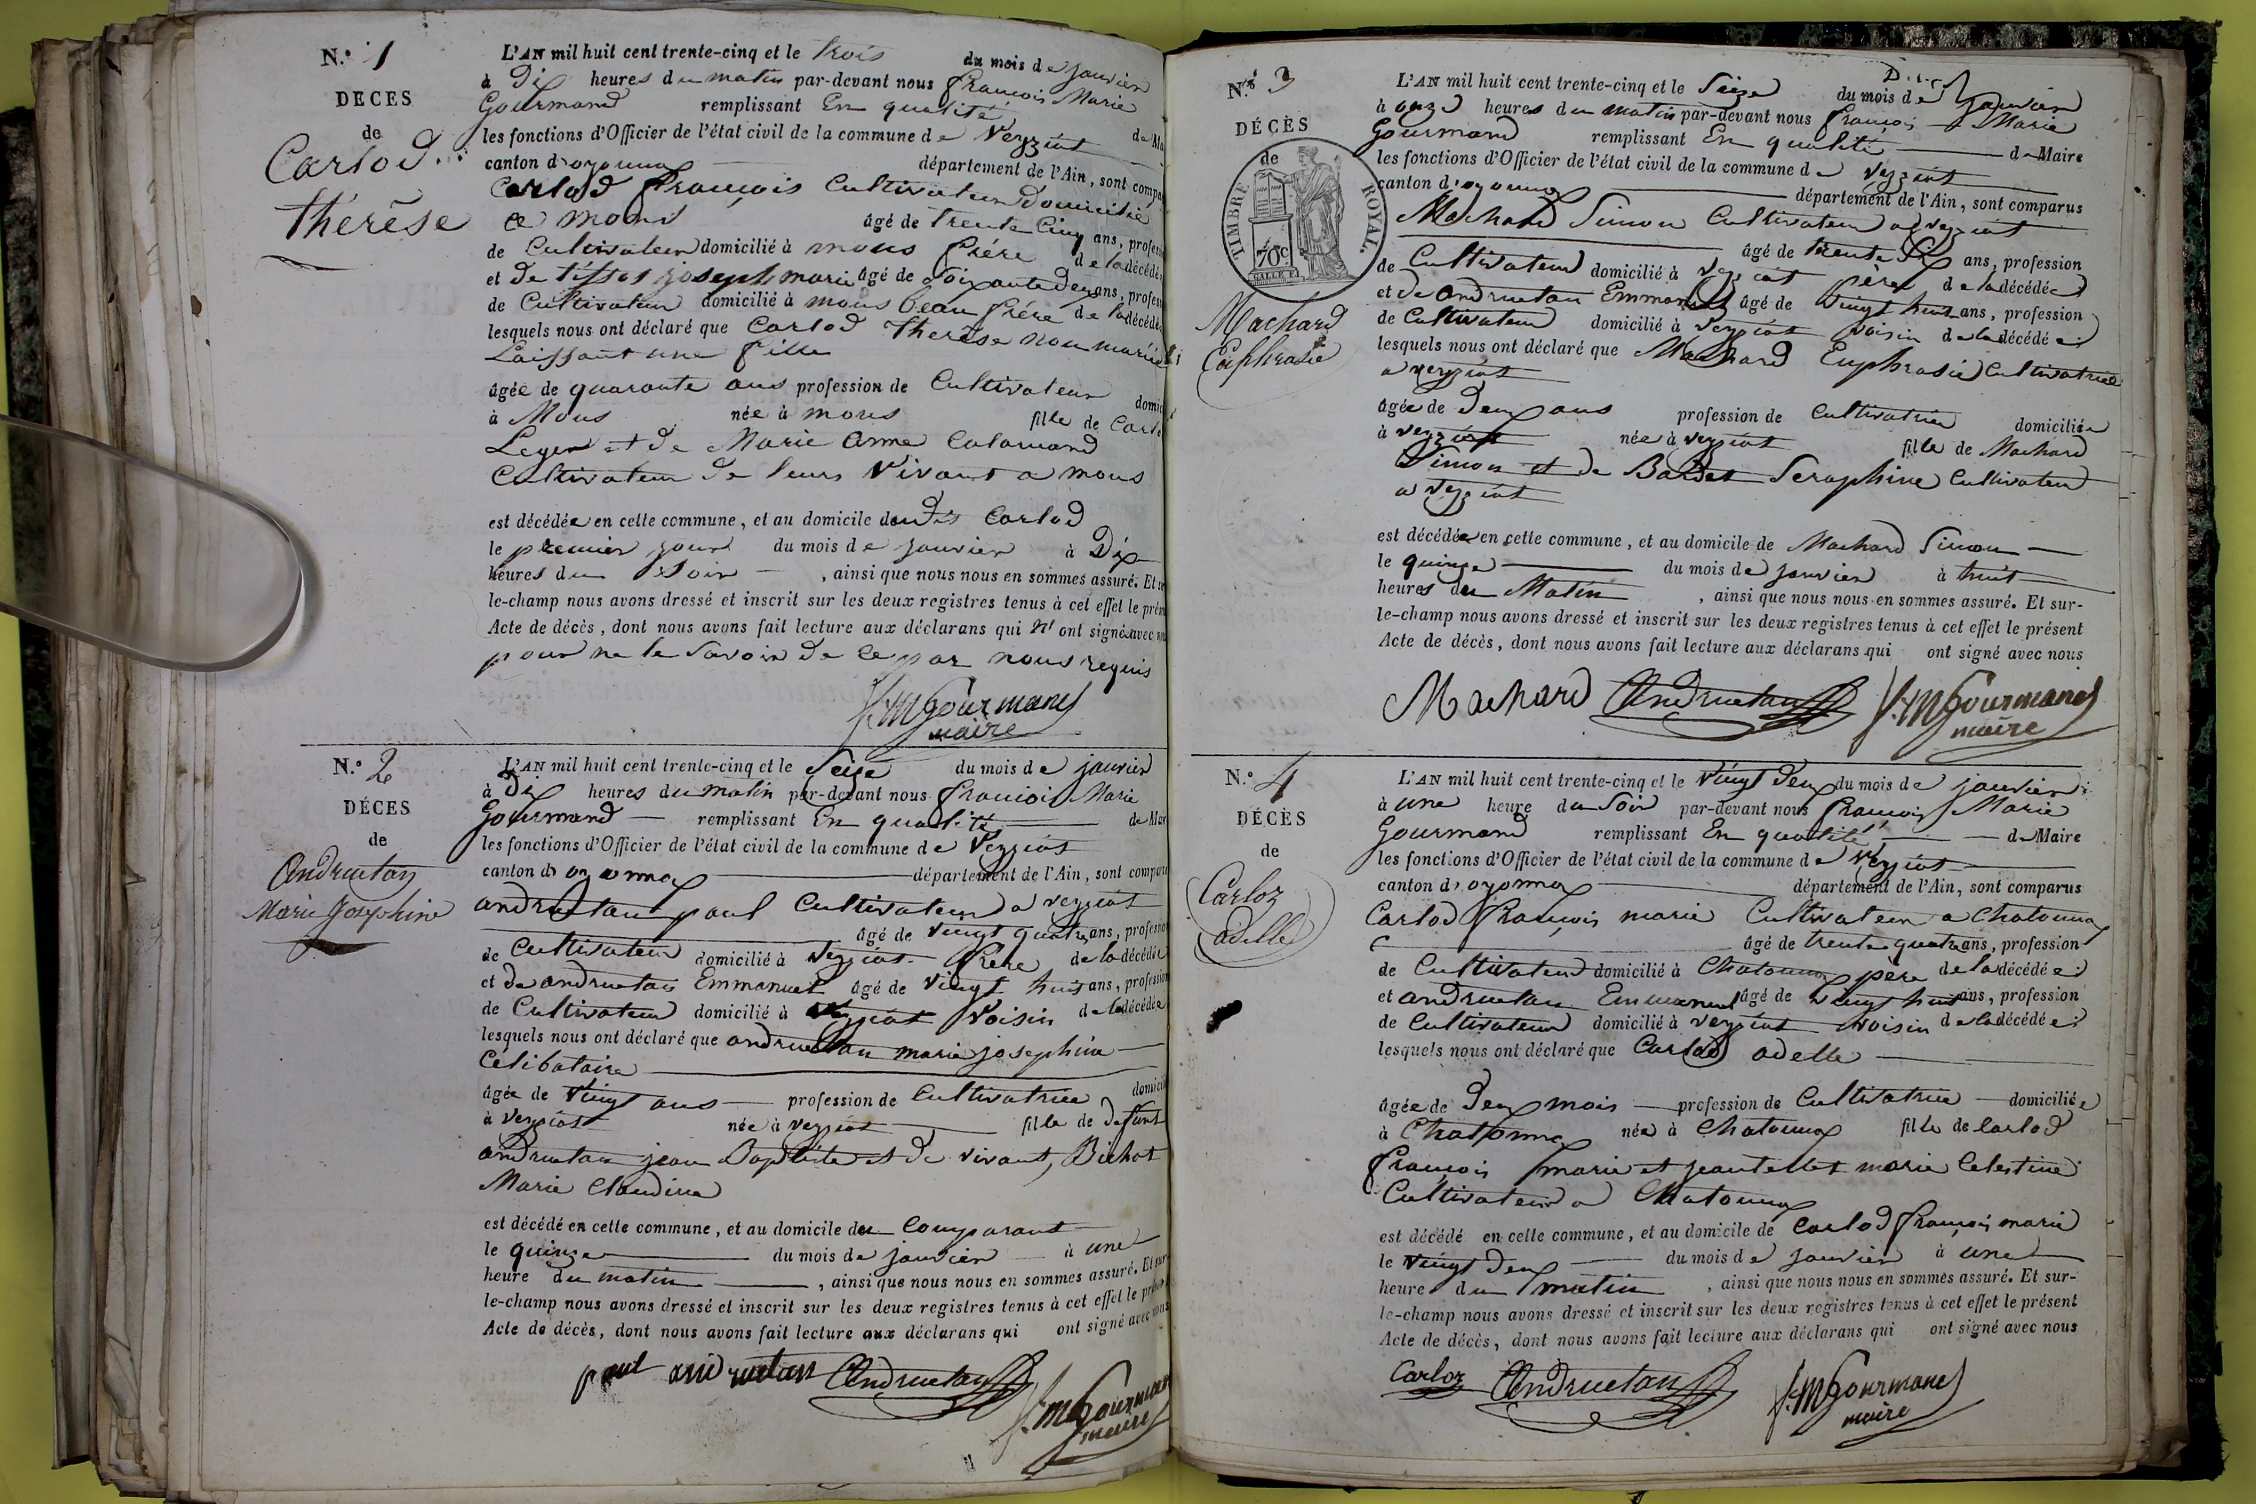 N.° 1
DECES
de
Carlod
thérèse
L'AN mil huit cent trente-cinq et le trois du mois de janvier
à Dix heures du matin par-devant nous françois Marie
Gourmand remplissant En qualité de Ma
les fonctions d'Officier de l'état civil de la commune de Veyziat
canton d'oyonnax département de l'Ain, sont compa
Carlod françois Cultivateur domicilié
a mons âgé de trente Cinq ans, profess
de Cultivateur domicilié à mons frére de la décédé
et de tissot joseph marie âgé de Soixante deux ans, profess
de Cultivateur domicilié à mons beau frére de la décédé
lesquels nous ont déclaré que Carlod thérèse non mariée
Laissant une fille
âgée de quarante ans profession de Cultivateur domici
à Mons née à mons fille de Carlo
Leger et de Marie anne Calamand
Cultivateur de leurs vivant a mons
est décédée en cette commune, et au domicile dudit Carlod
le premier jour du mois de janvier à Dix
heures du Soir, ainsi que nous nous en sommes assuré. Et su
le-champ nous avons dressé et inscrit sur les deux registres tenus à cet effet le prése
Acte de décès, dont nous avons fait lecture aux déclarans qui N' ont signé avec no
pour ne le Savoir de ce par nous requis
f. M Gourmand
maire
N.° 2
DÉCES
de
Andruetan
Marie Josephine
L'AN mil huit cent trente-cinq et le Seize du mois de janvier
à Dix heures du matin par-devant nous françois Marie
Gourmand remplissant En qualité de Mai
les fonctions d'Officier de l'état civil de la commune de Veyziat
canton d'oyonnax département de l'Ain, sont comparu
andruetan paul Cultivateur a veyziat
âgé de vingt quatre ans, profession
de Cultivateur domicilié à Veyziat frere de la décédée
et de andruetan Emmanuel âgé de vingt huit ans, profession
de Cultivateur domicilié à veyziat Voisin de la décédée
lesquels nous ont déclaré que andruetan marie josephine
Célibataire
âgée de vingt ans profession de Cultivatrice domicil
à veyziat née à veyziat fille de defunt
andruetan jean Baptiste et de vivant, Buchot
Marie Claudine
est décédé en cette commune, et au domicile du Comparant
le quinze du mois de janvier à une
heure du matin, ainsi que nous nous en sommes assuré. Et sur
le-champ nous avons dressé et inscrit sur les deux registres tenus à cet effet le prése
Acte de décès, dont nous avons fait lecture aux déclarans qui ont signé avec nous
paul andruetan Andruetan f. M Gourmand
maire
N.° 3
DÉCÈS
de
TIMBRE ROYAL.
70c
Machard
Euphrasie
L'AN mil huit cent trente-cinq et le Seize du mois de janvier
à onze heures du matin par-devant nous françois Marie
Gourmand remplissant En qualité de Maire
les fonctions d'Officier de l'état civil de la commune de veyziat
canton d'oyonnax département de l'Ain, sont comparus
Machard Simon Cultivateur a veyziat
âgé de trente Six ans, profession
de Cultivateur domicilié à veyziat père de la décédée
et de andruetan Emmanuel âgé de vingt huit ans, profession
de Cultivateur domicilié à veyziat voisin de la décédée
lesquels nous ont déclaré que Machard Euphrasie Cultivatrice
a veyziat
âgée de Deux ans profession de Cultivatrice domiciliée
à veyziat née à veyziat fille de Machard
Simon et de Bardet Seraphine Cultivateur
a veyziat
est décédée en cette commune, et au domicile de Machard Simon
le quinze du mois de janvier à huit
heures du Matin, ainsi que nous nous en sommes assuré. Et sur-
le-champ nous avons dressé et inscrit sur les deux registres tenus à cet effet le présent
Acte de décès, dont nous avons fait lecture aux déclarans qui ont signé avec nous
Machard Andruetan f. M Gourmand
maire
N.° 4
DÉCÈS
de
Carloz
adelle
L'AN mil huit cent trente-cinq et le vingt deux du mois de janvier
à une heure du Soir par-devant nous françois Marie
Gourmand remplissant En qualité de Maire
les fonctions d'Officier de l'état civil de la commune de veyziat
canton d'oyonnax département de l'Ain, sont comparus
Carlod françois marie Cultivateur a Chatonnax
âgé de trente quatre ans, profession
de Cultivateur domicilié à Chatonnax père de la décédée
et andruetan Emmanuel âgé de vingt huit ans, profession
de Cultivateur domicilié à veyziat voisin de la décédée
lesquels nous ont déclaré que Carlod adelle
âgée de Deux mois profession de Cultivatrice domiciliée
à Chatonnax née à Chatonnax fille de Carlod
françois marie et jeantellet marie Celestine
Cultivateur a Chatonnax
est décédé en cette commune, et au domicile de Carlod françois marie
le vingt Deux du mois de janvier à une
heure du matin, ainsi que nous nous en sommes assuré. Et sur-
le-champ nous avons dressé et inscrit sur les deux registres tenus à cet effet le présent
Acte de décès, dont nous avons fait lecture aux déclarans qui ont signé avec nous
Carloz Andruetan f. M Gourmand
maire